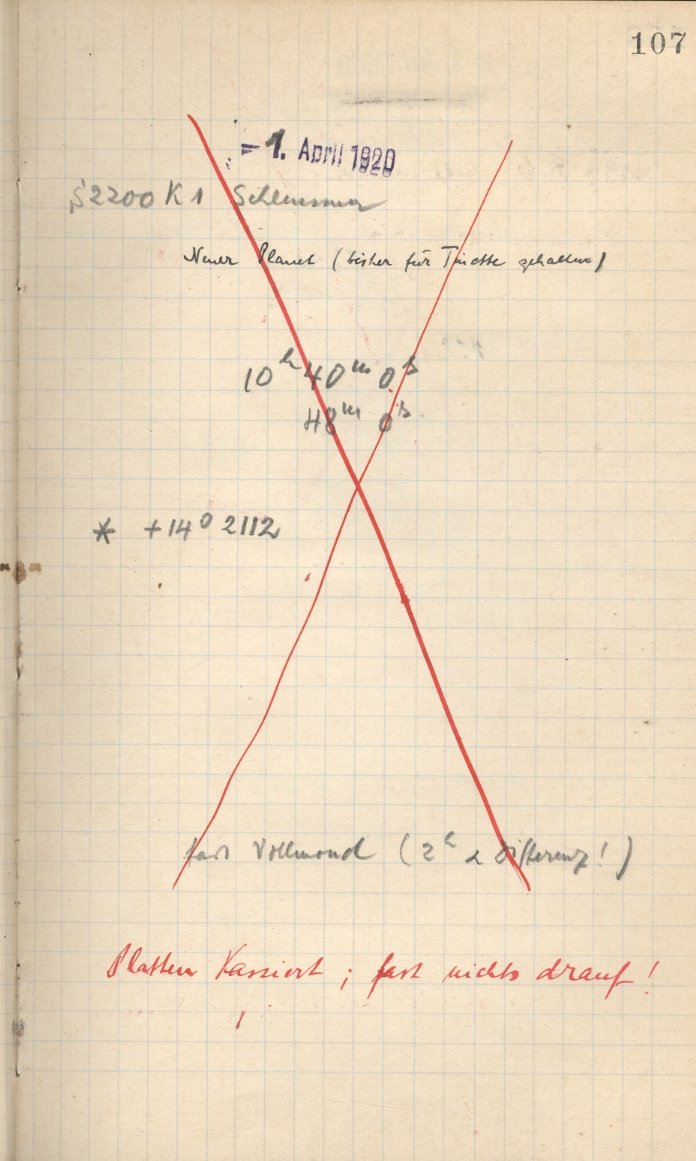 107
– 1. April 1920
S2200 K1 Schleussner
Neuer Planet (bisher für Tuckle gehalten)
10ʰ 40ᵐ 0ˢ
48ᵐ 0ˢ
* +14° 2112
fast Vollmond (2ʰ α Differenz!)
Platten kassiert; fast nichts drauf!